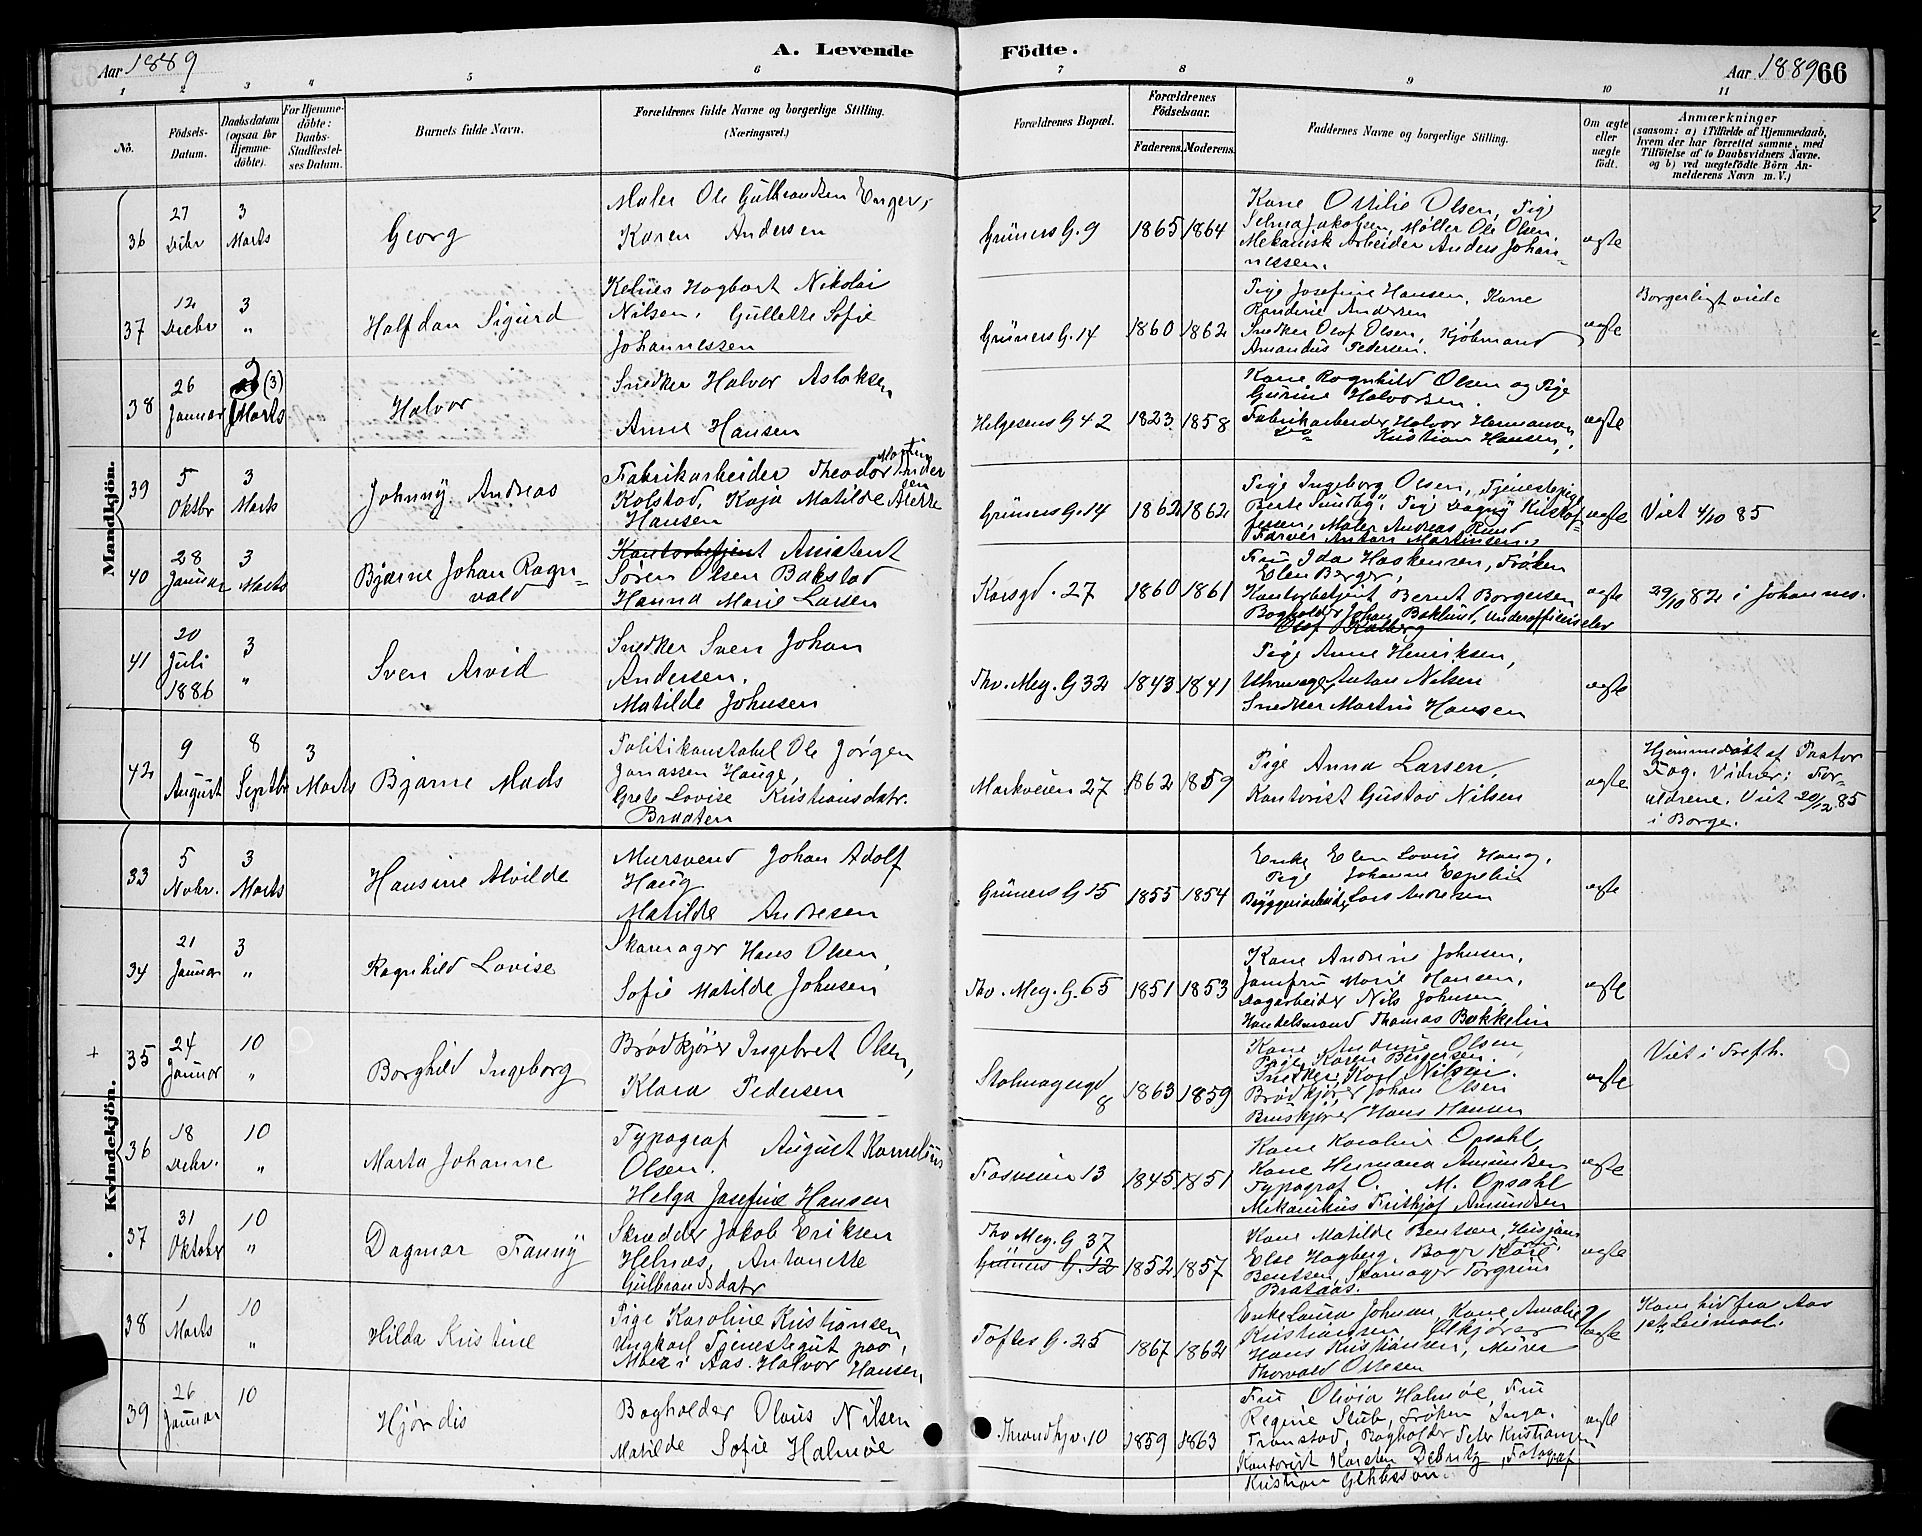 Aar 1889
A. Levende
Födte.
Aar 1889
66
1 2 3 4 5 6 7 8 9 10 11
No.
Födsels-
Datum.
Daabsdatum
(ogsaa for
Hjemme-
döbte).
For Hjemme-
döbte:
Daabs-
Stadfæstel-
ses Datum.
Barnets fulde Navn.
Forældrenes fulde Navne og borgerlige Stilling.
(Næringsvei.)
Forældrenes Bopæl.
Forældrenes
Födselsaar.
Faderens.
Moderens.
Faddernes Navne og borgerlige Stilling.
Om ægte
eller
uægte
födt.
Anmærkninger
(saasom: a) i Tilfælde af Hjemmedaab,
hvem der har forrettet samme, med
Tilföielse af to Daabsvidners Navne.
og b) ved uægtefödte Börn An-
melderens Navn m. V.)
Mandkjön.
36
27
Decbr
3
Marts
Georg
Maler Ole Gulbrandsen Enger,
Karen Andersen
Grüners G. 9
1865
1864
Kone Ottilie Olsen, Pige
Selma Jakobsen, Møller Ole Olsen,
Mekanisk Arbeider Anders Johan-
nessen.
ægte
37
12
Decbr
3
"
Halfdan Sigurd
Kelner Hagbart Nikolai
Nilsen, Gullette Sofie
Johannessen
Grüners G. 14
1860
1862
Pige Josefine Hansen, Kone
Randine Andersen
Snedker Olof Olsen, Kjøbmand
Amandus Pedersen.
ægte
Borgerligt viede
38
26
Januar
3 (3)
Marts
Halvor
Snedker Halvor Aslaksen
Anne Hansen
Helgesens G 42
1823
1858
Kone Ragnhild Olsen og Pige
Gurine Halvorsen.
Fabrikarbeider Halvor Hermansen
Do Kristian Hansen,
ægte
39
5
Oktbr
3
Marts
Johnny Andreas
Fabrikarbeider Theodor Martin Ander
sen
Kolstad, Kaja Matilde Alette
Hansen
Grüners G. 14
1862
1862
Pige Ingeborg Olsen, Tjenestepige
Berte Sundby, Pige Dagny Kristof-
fersen, Maler Andreas Rud
Farver Anton Martinsen.
ægte
Viet 4/10 85
40
28
Januar
3
Marts
Bjarne Johan Ragn-
vald
Kontorbetjent Assistent
Søren Olsen Bakstad
Hanna Marie Larsen
Korsgd. 27
1860
1861
Fru Ida Haakensen, Frøken
Elen Berger,
Kontorbetjent Bernt Borgersen
Bogholder Johan Baklund, Underofficierselev
Olof Kolberg
ægte
29/10 82 i Johannes.
41
20
Juli
1886
3
"
Sven Arvid
Snedker Sven Johan
Andersen.
Matilde Johnsen
Thv. Mey. G 32
1843
1841
Pige Anne Henriksen,
Uhrmager Anton Nilsen
Snedker Martin Hansen
ægte
42
9
August
8
Septbr
3
Marts
Bjarne Mads
Politikonstabel Ole Jørgen
Jonassen Hauge,
Grete Lovise Kristiansdatr.
Braaten
Markveien 27
1862
1859
Pige Anna Larsen,
Kontorist Gustav Nilsen
ægte
Hjemmedøbt af Pastor
Fog. Vidner: For-
ældrene. Viet 20/12 85
i Borge.
Kvindekjön.
33
5
Novbr.
3
Marts
Hansine Alvilde
Mursvend Johan Adolf
Haug
Matilde Andresen
Grüners G 15
1855
1854
Enke Elen Lovise Haug,
Pige Johanne Espelin
Bryggeriarbeider Lars Andresen
ægte
34
21
Januar
3
"
Ragnhild Lovise
Skomager Hans Olsen,
Sofie Matilde Johnsen
Thv. Mey. G. 65
1851
1853
Kone Andrine Johnsen,
Jomfru Marie Hansen,
Dagarbeider Nils Johnsen,
Handelsmand Thomas Bakkelin
ægte
35
24
Januar
10
"
Borghild Ingeborg
Brødkjører Ingebret Olsen,
Klara Pedersen
Stolmagergd
8
1863
1859
Kone Andrine Olsen,
Pige Karen Birgersen.
Snedker Karl Nilsen.
Brødkjører Johan Olsen
Bruskjører Hans Hansen
ægte
Viet i Trefh.
36
18
Decbr.
10
"
Marta Johanne
Typograf August Kornelius
Olsen.
Helga Josefine Hansen
Fosveien 13
1845
1851
Kone Karoline Opsahl,
Kone Hermana Amundsen
Typograf O. M. Opsahl
Mekanikus Fritkjof Amundsen
ægte
37
31
Oktobr
10
"
Dagmar Fanny
Skrædder Jakob Eriksen
Helnæs, Antonette
Gulbrandsdatr
Thv. Mey. G 37
Grüners G. 12
1852
1857
Kone Matilde Bentsen,
Else Hagberg, Bager Karl
Bentsen, Skomager Torgrim
Brataas.
ægte
38
1
Marts
10
"
Hilda Kristine
Pige Karoline Kristiansen
Ungkarl Tjenestegut paa
i Aas. Halvor Hansen,
Toftes G. 25
1867
1862
Enke Laura Johnsen, Kone Amalie
Kristiansen Ølkjører
Hans Kristiansen, Murer
Thorvald Olsen
Uægte
Kom hid fra Aas
1ste Leiermaal.
39
26
Januar
10
Hjørdis
Bogholder Olaus Nilsen
Matilde Sofie Halmøe
Throndhjv. 10
1859
1863
Fru Olivia Halmøe, Fru
Regine Stub, Frøken Inga
Tronstad, Bogholder Peter Kristiansen
Kontorist Karsten Debritz, Fotograf
Kristian
ægte